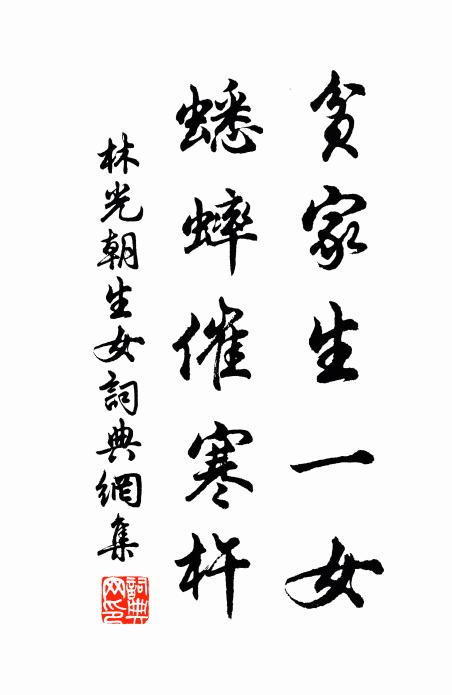 貧家生一女
蟋蟀催寒杵
林光朝生女詞典網集
詞典网印